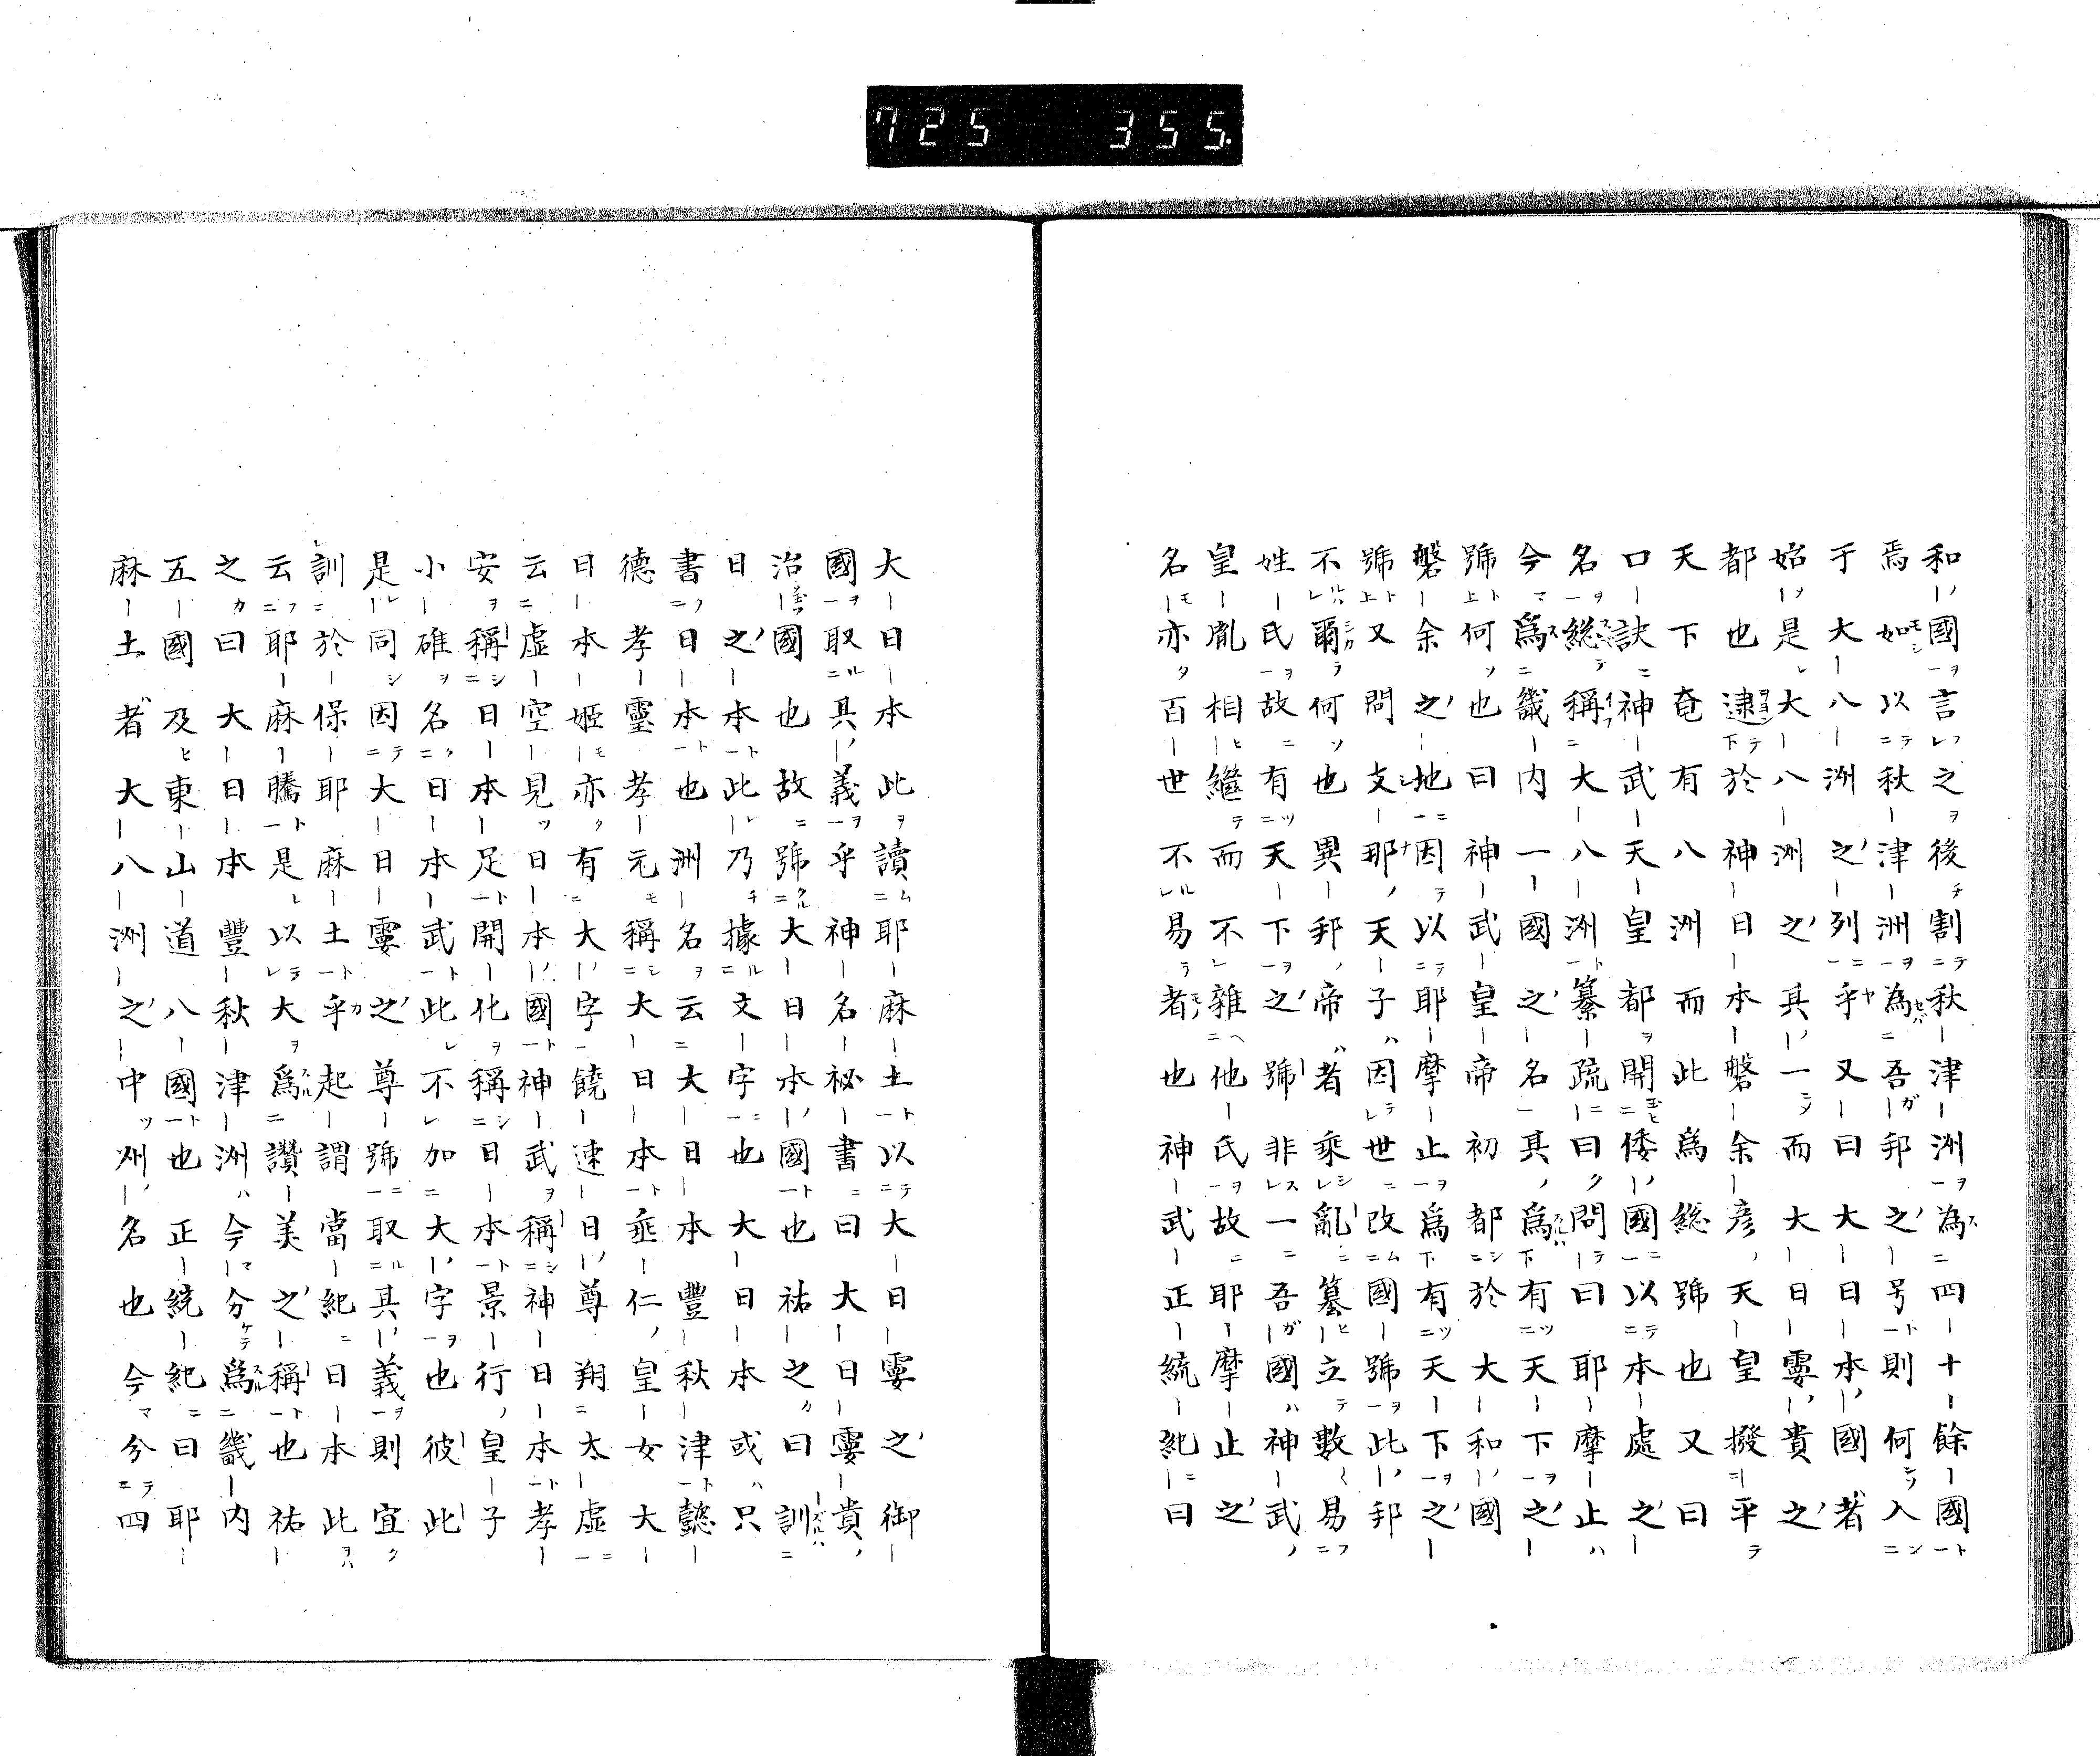 725 355.
和國言之後割秋津洲為四十餘國
焉如以秋津洲為吾邦之号則何入
于大八洲之列乎又曰大日本國者
始是大八洲之其一而大日孁貴之
都也逮於神日本磐余彦天皇撥平
天下奄有八洲而此爲総號也又曰
口訣神武天皇都開倭國以本處之
名総稱大八洲纂疏曰問曰耶摩止
今爲畿內一國之名其爲有天下之
號何也曰神武皇帝初都於大和國
磐余之地因以耶摩止爲有天下之
號又問支那天子因世改國號此邦
不爾何也異邦帝者乘亂簒立數易
姓氏故有天下之號非一吾國神武
皇胤相繼而不雜他氏故耶摩止之
名亦百世不易者也神武正統紀曰
大日本此讀耶麻土以大日孁之御
國取其義乎神名祕書曰大日孁貴
治國也故號大日本國也祐之曰訓
日之本此乃據文字也大日本或只
書日本也洲名云大日本豐秋津懿
德孝靈孝元稱大日本垂仁皇女大
日本姬亦有大字饒速日尊翔太虛
云虛空見日本國神武稱神日本孝
安稱日本足開化稱日本景行皇子
小碓名日本武此不加大字也彼此
是同因大日孁之尊號取其義則宜
訓於保耶麻土乎起謂當紀日本此
云耶麻騰是以大爲讚美之稱也祐
之曰大日本豐秋津洲今分爲畿內
五國及東山道八國也正統紀曰耶
麻土者大八洲之中州名也今分四